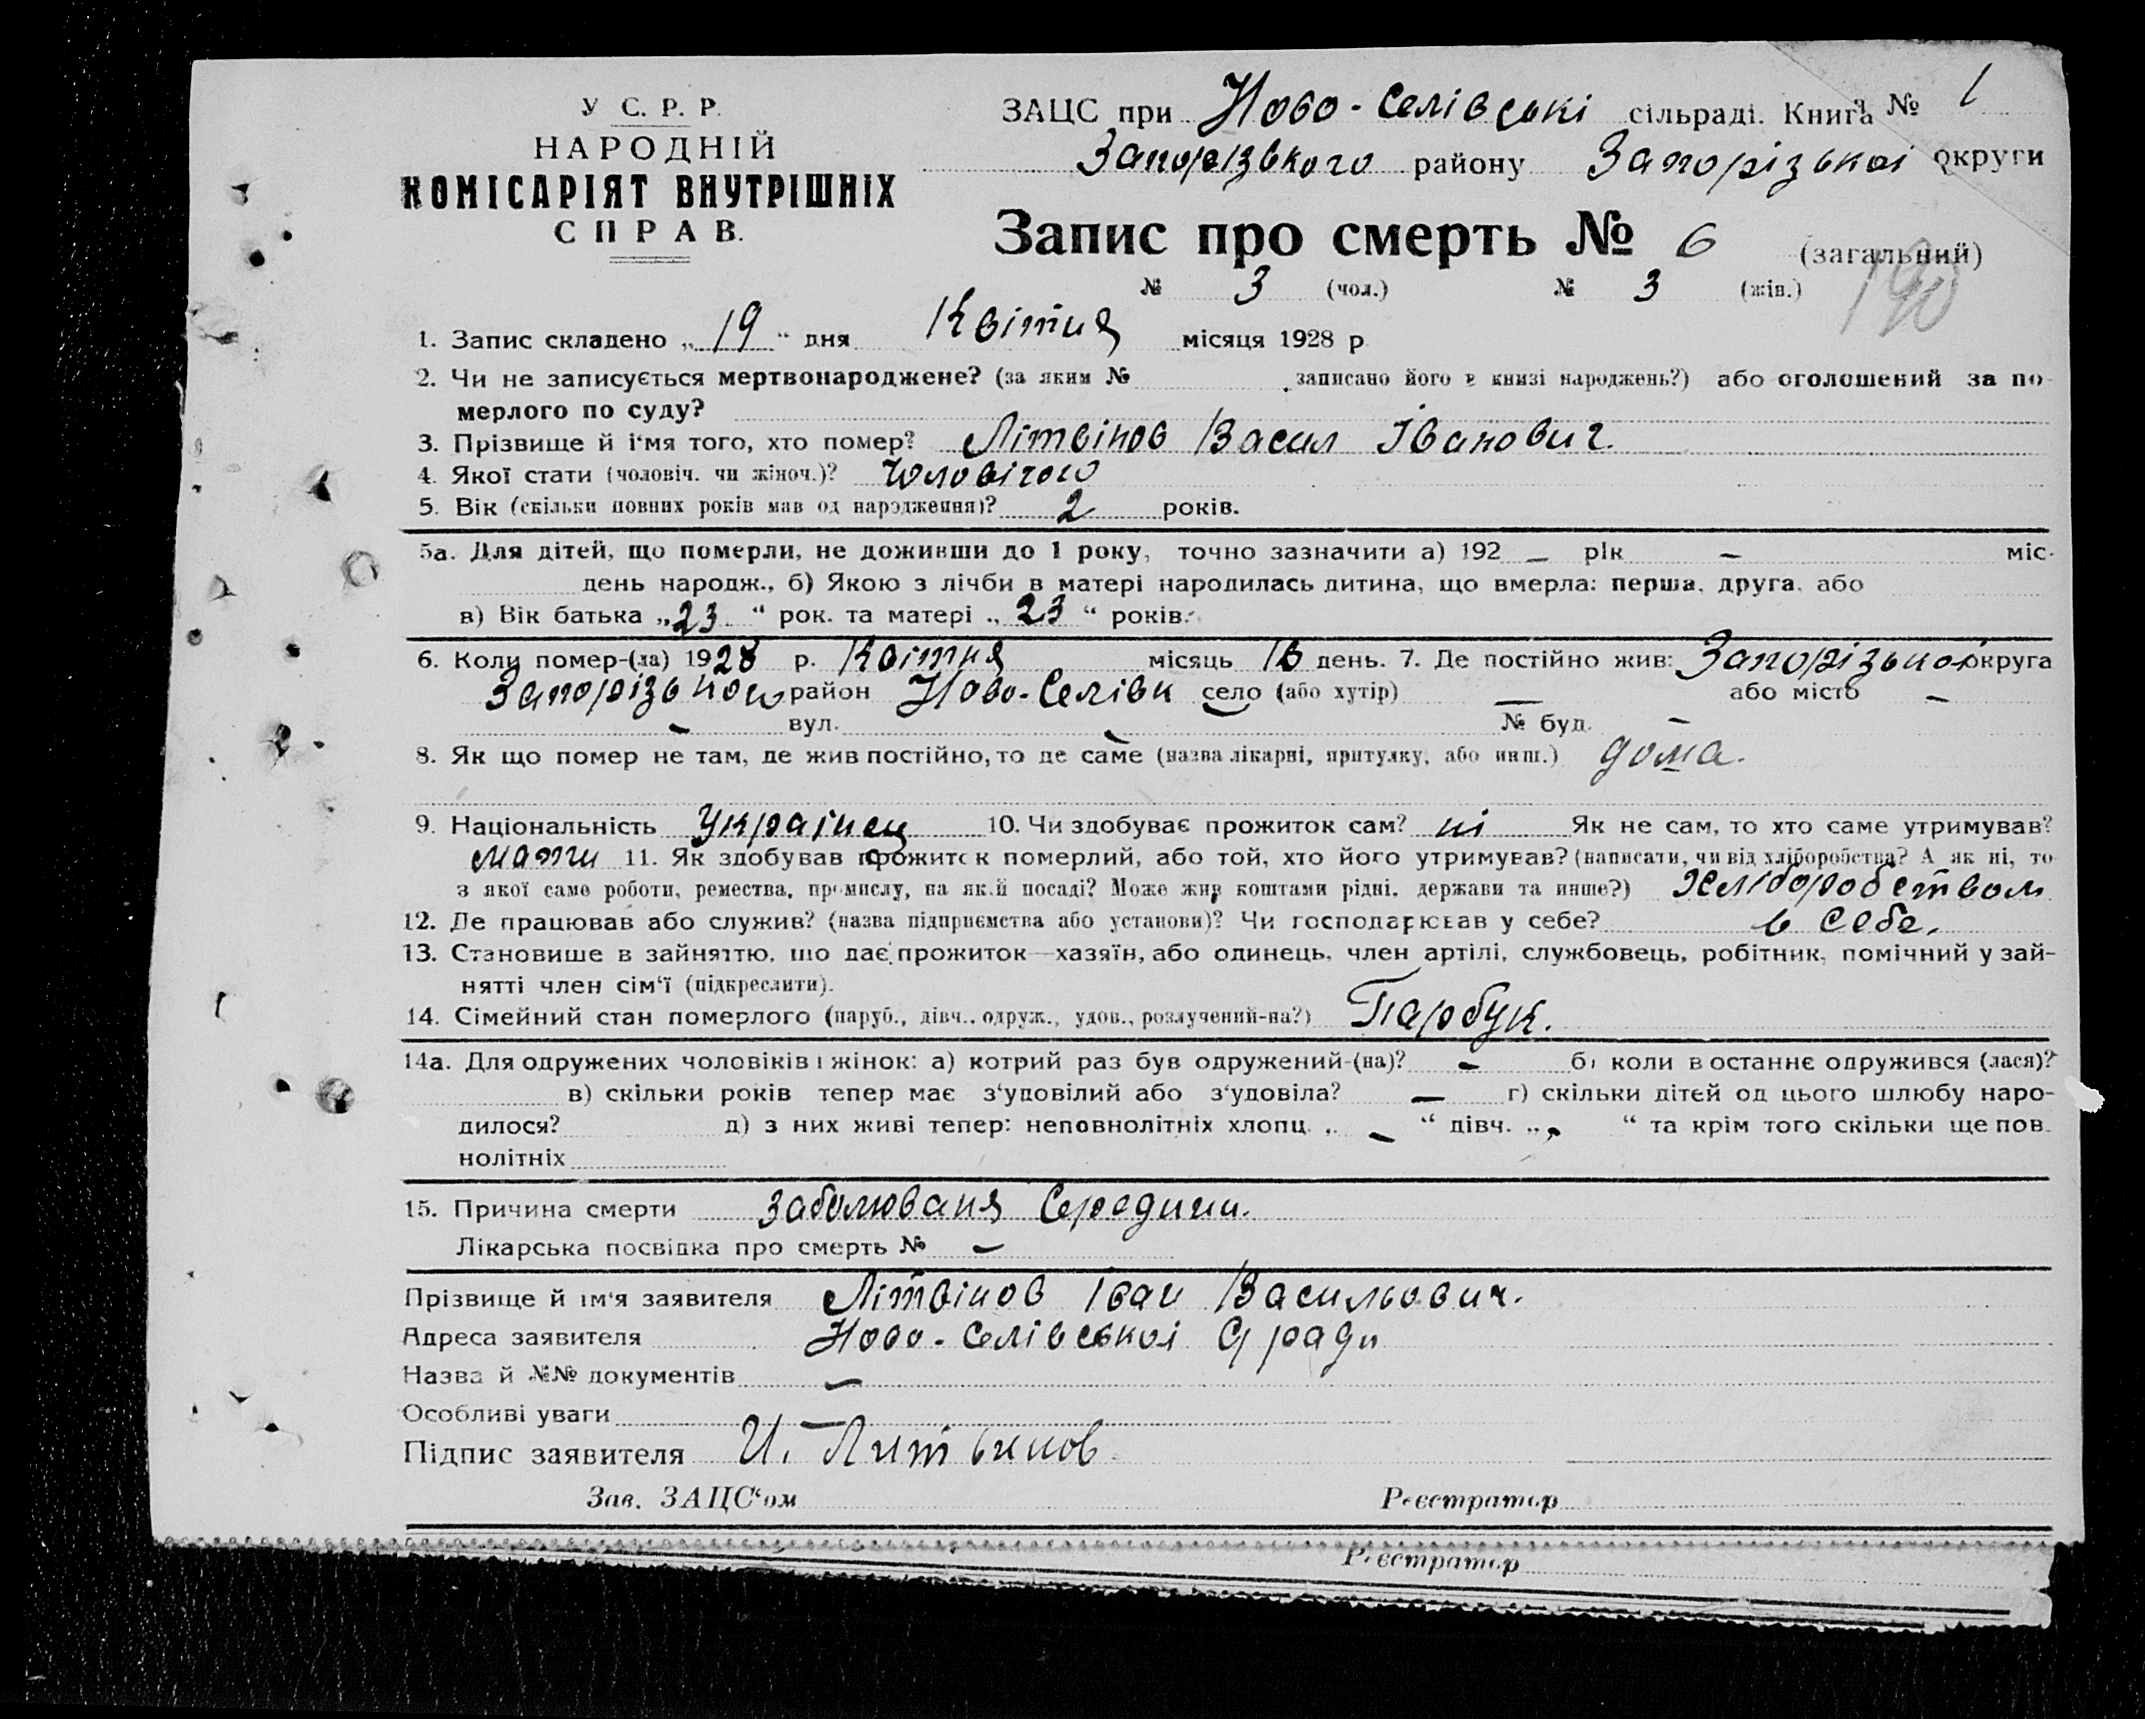 У С. Р. Р.
НАРОДНІЙ
КОМІСАРІЯТ ВНУТРІШНІХ
СПРАВ.
ЗАЦС при Ново-Селівські сільраді. Книга № 1
Запорізького району Запорізькоі округи
Запис про смерть № 6 (загальний)
№ 3 (чол.) № 3 (жін.)
190
1. Запис складено „19“ дня Квітня місяця 1928 р
2. Чи не записується мертвонароджене? (за яким № записано його в книзі народжень?) або оголошений за по-
мерлого по суду?
3. Прізвище й і'мя того, хто помер? Літвінов Васил Іванович.
4. Якої стати (чоловіч. чи жіноч.)? Чоловічою
5. Вік (скільки повних років мав од народження)? 2 років.
5а. Для дітей, що померли, не доживши до 1 року, точно зазначити а) 192 – рік – міс.
день народж., б) Якою з лічби в матері народилась дитина, що вмерла: перша, друга, або
в) Вік батька „23“ рок. та матері „23“ років.
6. Коли помер-(ла) 1928 р. Квітня місяць день. 7. Де постійно жив: Запорізькоі округа
Запорізькою район Ново-Селівк село (або хутір) — або місто –
– вул. – № буд. –
8. Як що помер не там, де жив постійно, то де саме (назва лікарні, притулку, або инш.) дома.
9. Національність Украінец 10. Чи здобуває прожиток сам? ні Як не сам, то хто саме утримував?
мати 11. Як здобував прожиток померлий, або той, хто його утримував? (написати, чи від хліборобства? А як ні, то
з якої саме роботи, ремества, промислу, на якій посаді? Може жив коштами рідні, держави та инше?) Хліборобством
12. Де працював або служив? (назва підприємства або установи)? Чи господарював у себе? в себе.
13. Становише в зайняттю, що дає прожиток—хазяїн, або одинець, член артілі, службовець, робітник, помічний у зай-
нятті член сім'ї (підкреслити).
14. Сімейний стан померлого (паруб., дівч., одруж., удов., розлучений-на?) Парбук.
14а. Для одружених чоловіків і жінок: а) котрий раз був одружений-(на)? – б) коли востаннє одружився (лася)?
в) скільки років тепер має з'удовілий або з'удовіла? — г) скільки дітей од цього шлюбу наро-
дилося? д) з них живі тепер: неповнолітніх хлопц. „ – “ дівч. „ – “ та крім того скільки ще пов-
нолітніх
15. Причина смерти заболюваня Середини.
Лікарська посвідка про смерть № –
Прізвище й ім'я заявителя Літвінов Іван Васильович.
Адреса заявителя Ново-Селівськоі С/ради
Назва й №№ документів –
Особливі уваги —
Підпис заявителя И. Литвинов
Зав. ЗАЦС'ом Реєстратор
Реєстратор